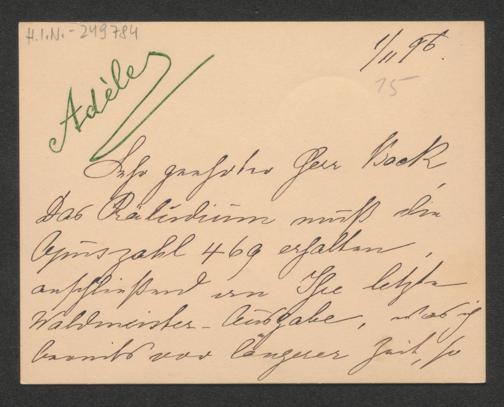 H.I.N.-249784
1/11 96.
15
Adèle
Sehr geehrter Herr Bock
Das Präludium muß die
Opuszahl 469 erhalten,
anschließend an Ihre letzte
Waldmeister-Ausgabe, was ich
bereits vor längerer Zeit, so